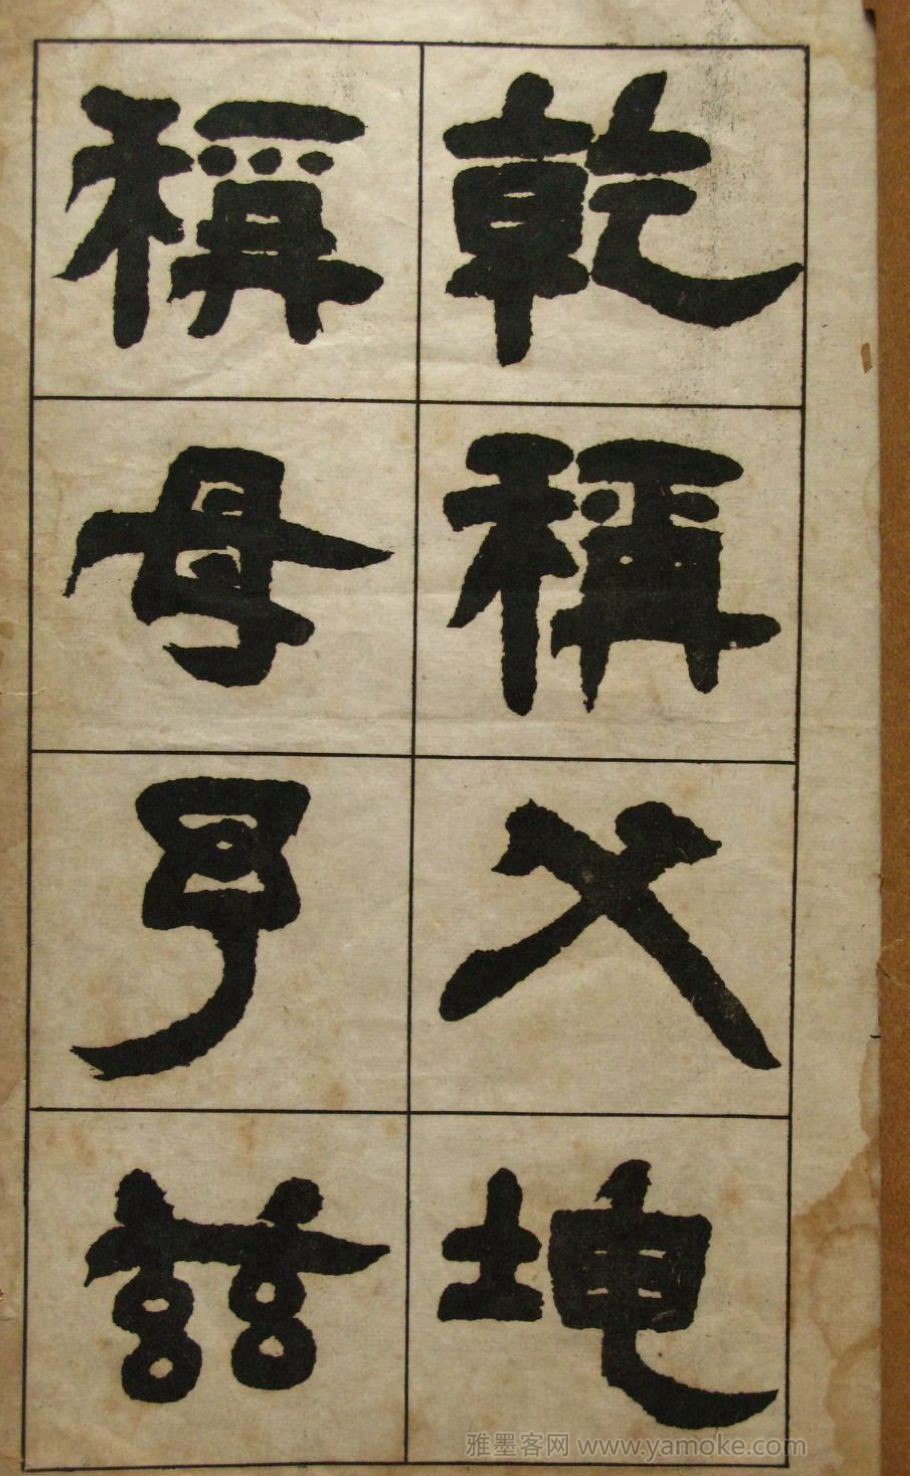 乾稱父坤
稱母予茲
雅墨客网 www.yamoke.com